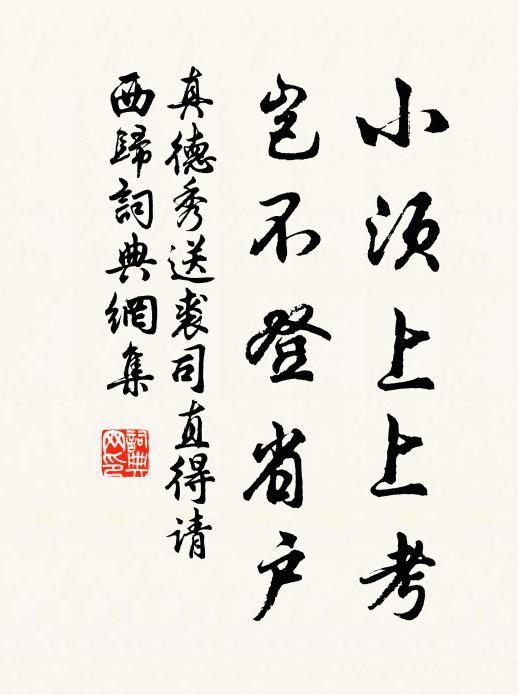 小须上上考
岂不登省户
真德秀送裘司直得请
西歸詞典網集
詞典网印